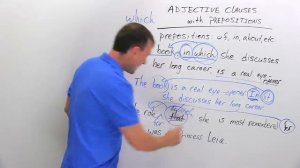 which
ADJECTIVE CLAUSES
with PREPOSITIONS
prepositions: of, in, about, etc.
book in which she discusses
her long career, is a real eye-opener
The book is a real eye-opener. In it
she discusses her long career.
that she is most remembered for
for
was Princess Leia.